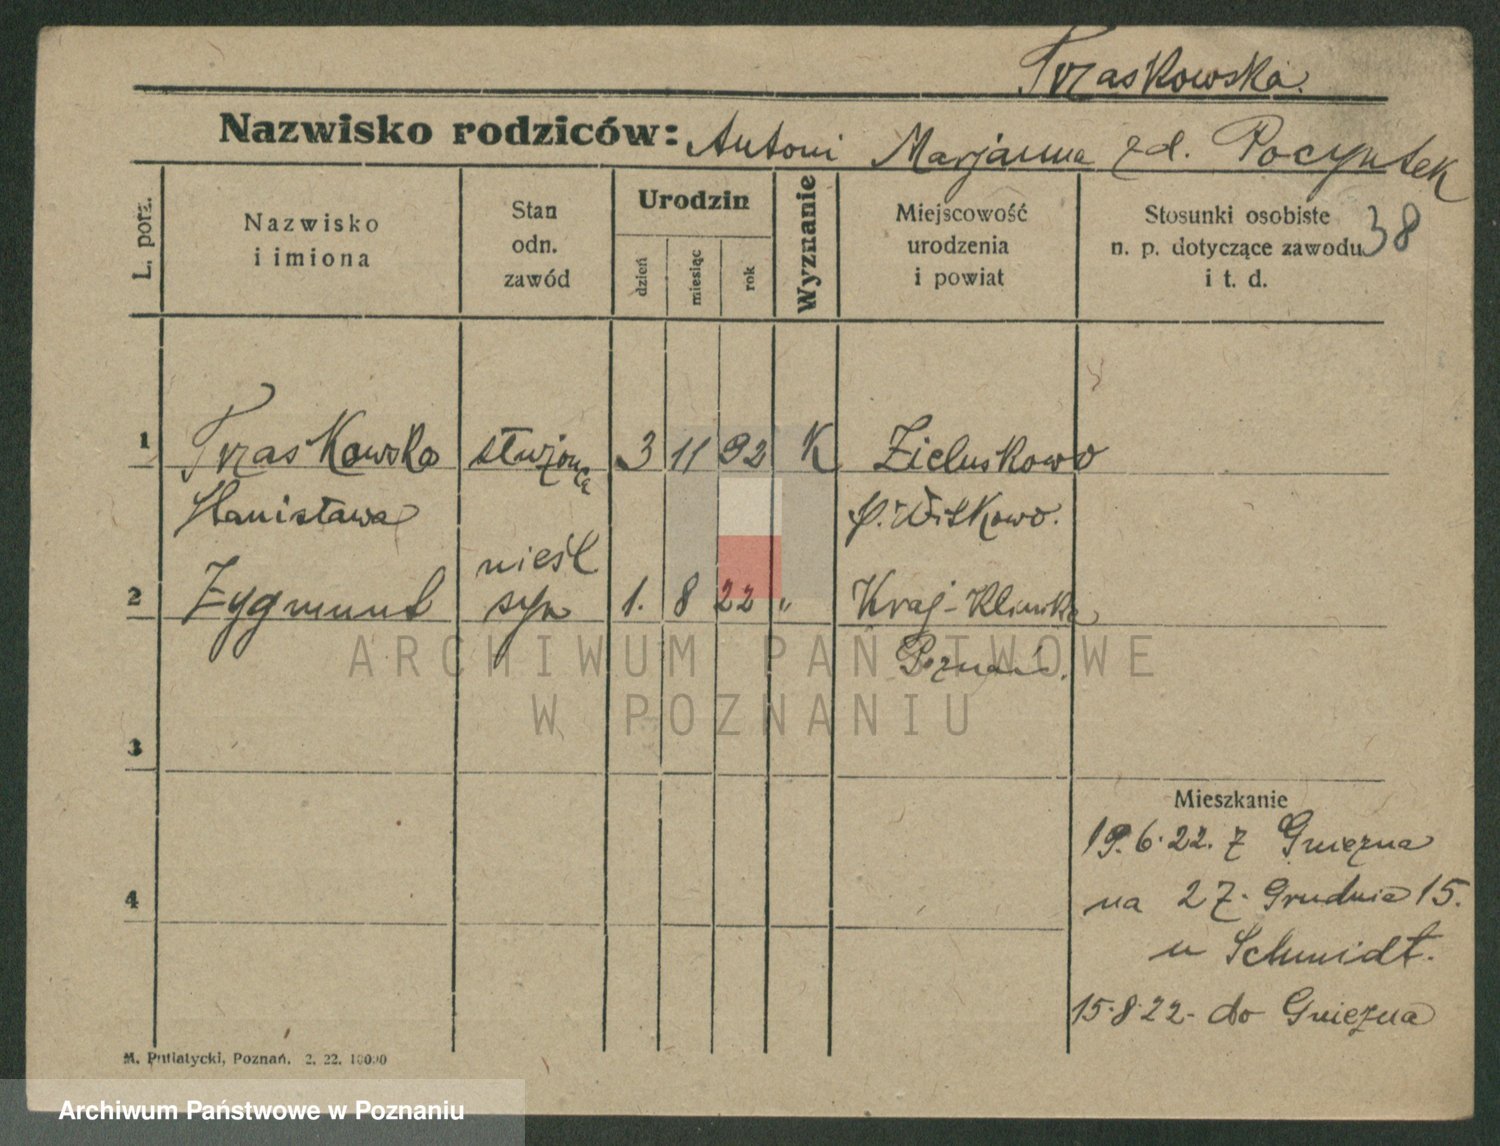 Trzaskowska.
Nazwisko rodziców: Antoni Marjanna zd. Początek
L. porz.
Nazwisko i imiona
Stan odn. zawód
Urodzin
dzień miesiąc rok
Wyznanie
Miejscowość urodzenia i powiat
Stosunki osobiste n. p. dotyczące zawodu i t. d.
38
1 Trzaskowska służąca 3 11 92 K Zieluskowo
Stanisława p. Witkowo.
nieśl
2 Zygmunt syn 1. 8 22 „ Kraj-Klinika
Poznań.
3
Mieszkanie
19.6.22. z Gniezna
4
na 27 Grudnia 15.
u Schmidt.
15.8.22 do Gniezna
M. Putiatycki, Poznań. 2. 22. 10000
ARCHIWUM PAŃSTWOWE
W POZNANIU
Archiwum Państwowe w Poznaniu